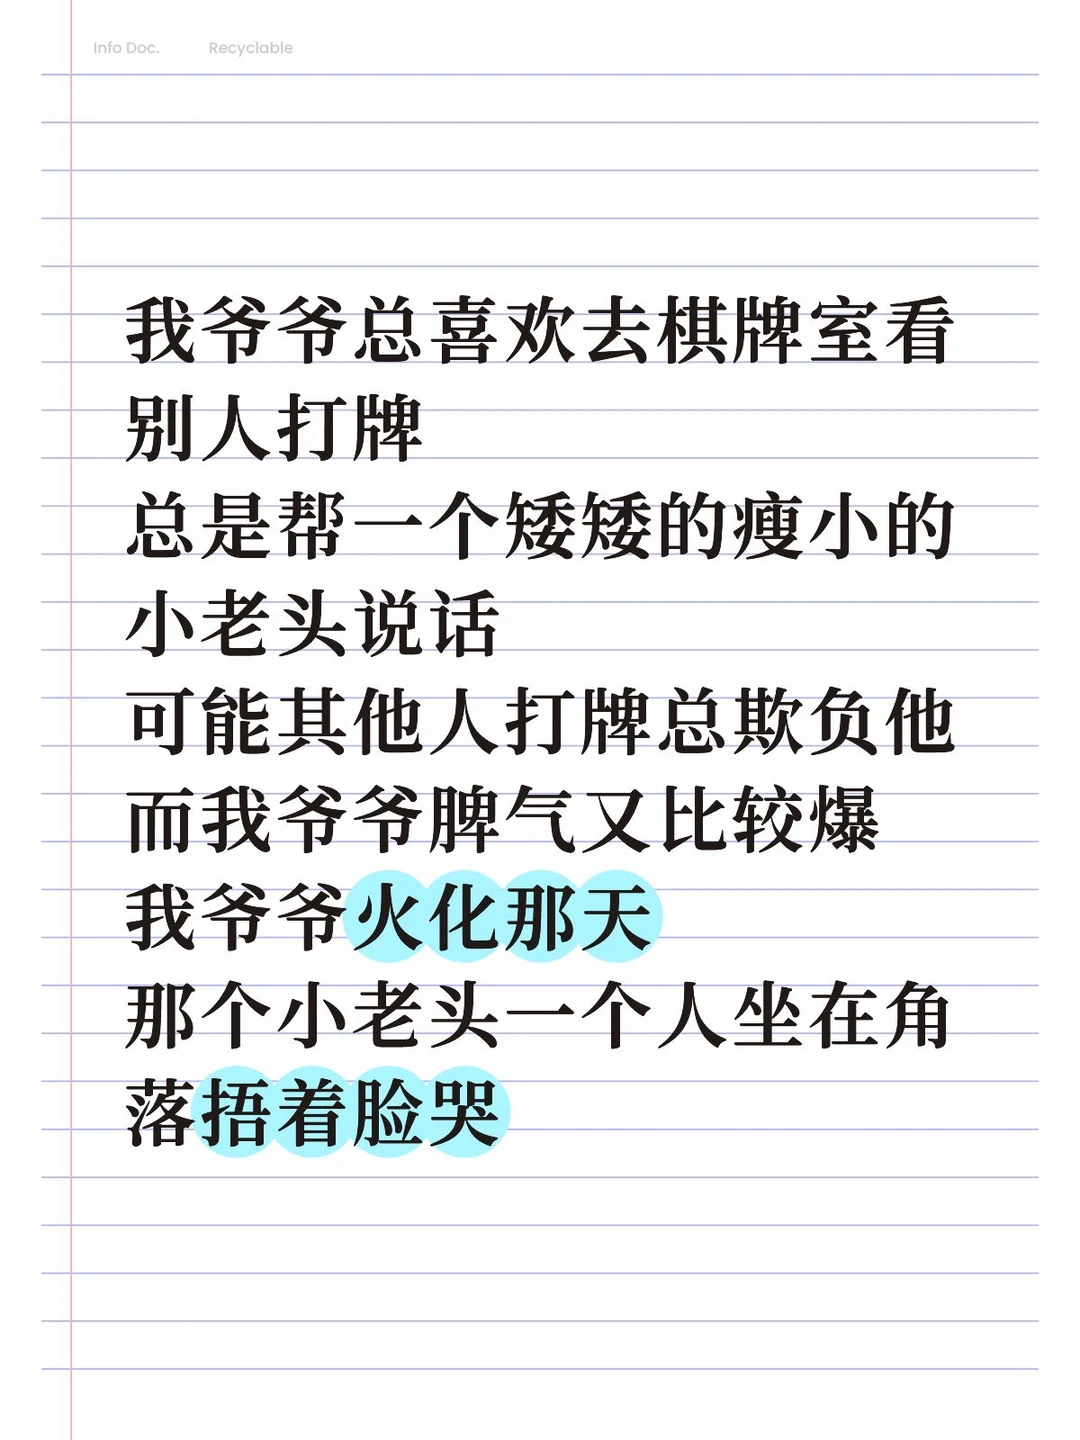 Info Doc. Recyclable
我爷爷总喜欢去棋牌室看
别人打牌
总是帮一个矮矮的瘦小的
小老头说话
可能其他人打牌总欺负他
而我爷爷脾气又比较爆
我爷爷火化那天
那个小老头一个人坐在角
落捂着脸哭